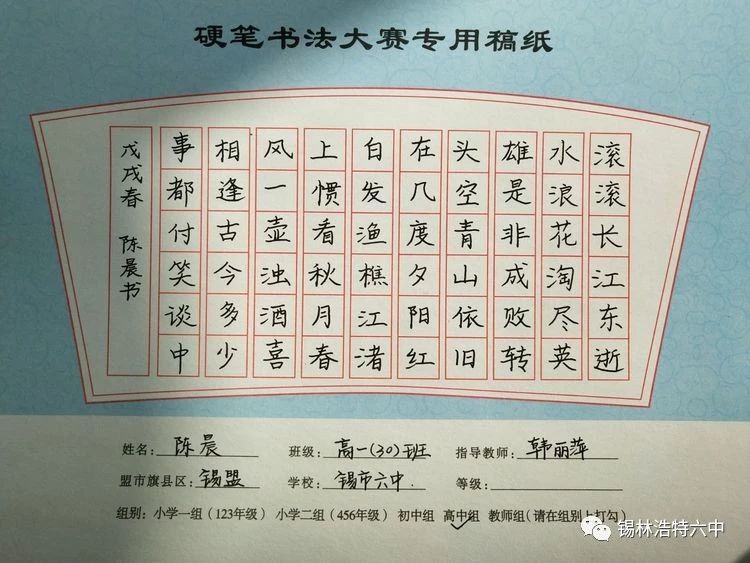 硬笔书法大赛专用稿纸
滚滚长江东逝
水浪花淘尽英
雄是非成败转
头空青山依旧
在几度夕阳红
白发渔樵江渚
上惯看秋月春
风一壶浊酒喜
相逢古今多少
事都付笑谈中
戊戌春 陈晨书
姓名：陈晨 班级：高一(30)班 指导教师：韩丽萍
盟市旗县区：锡盟 学校：锡市六中. 等级：
组别：小学一组（123年级） 小学二组（456年级） 初中组 高中组 教师组(请在组别上打勾)
锡林浩特六中